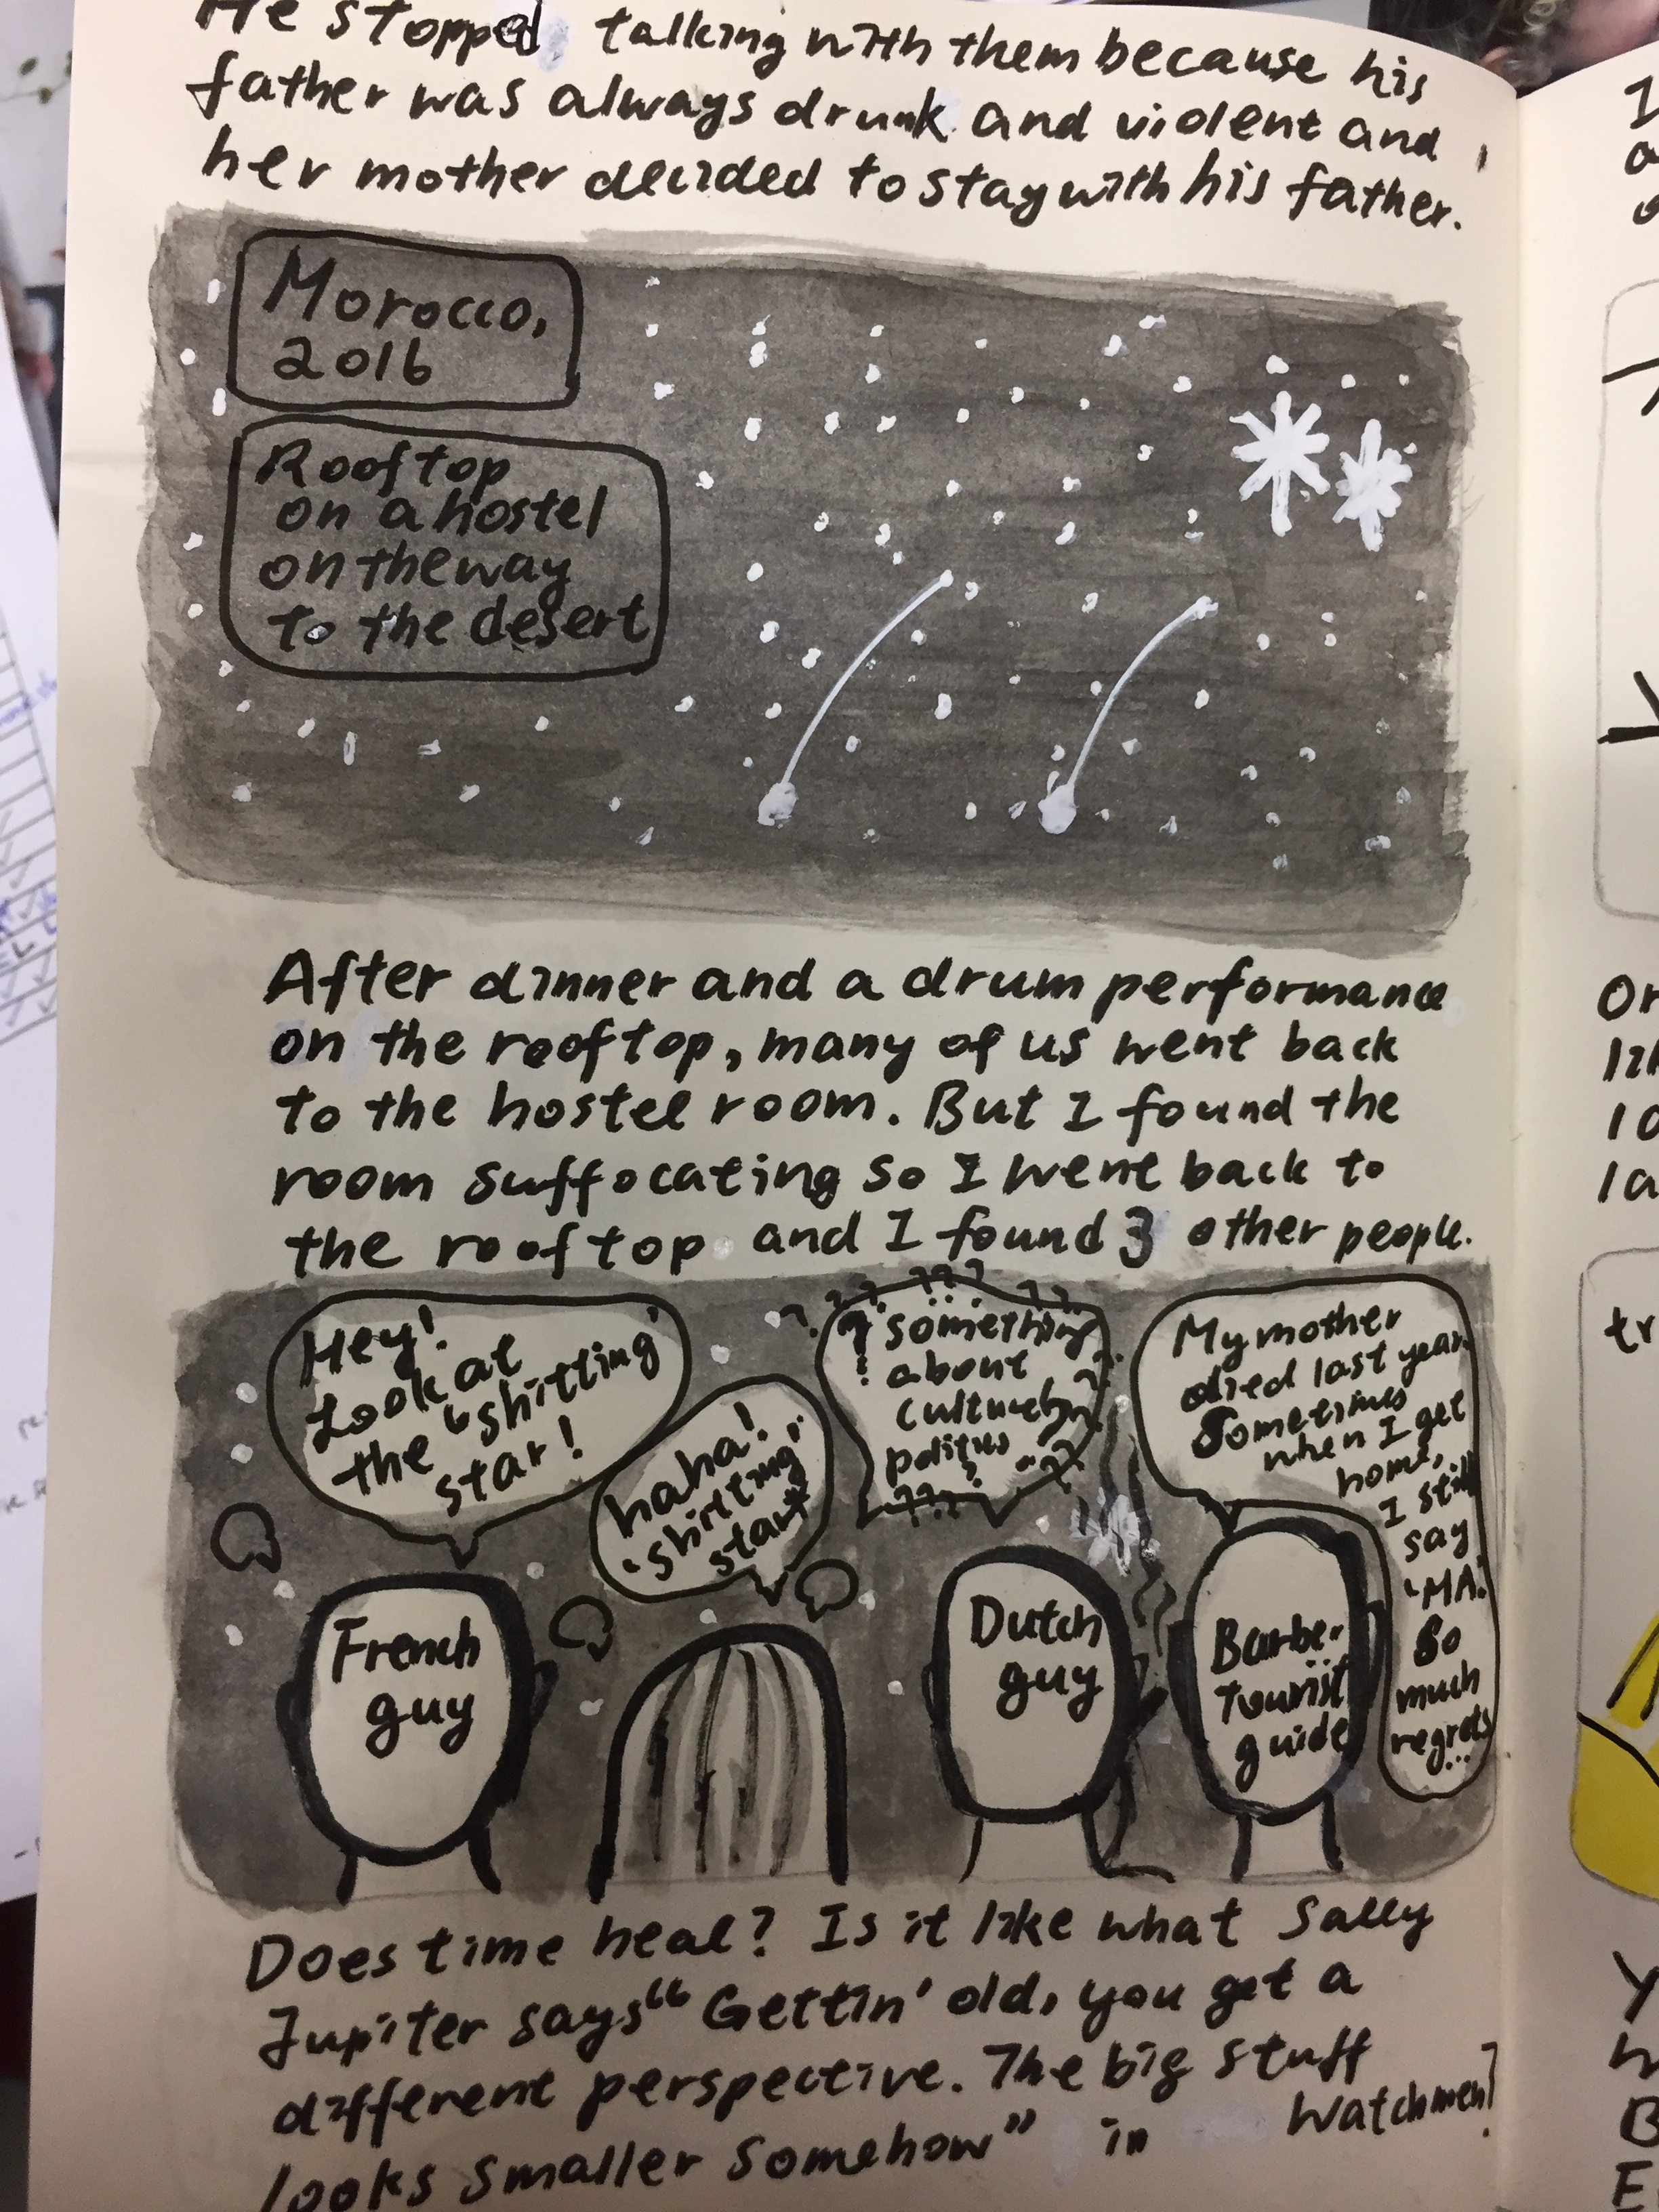 He stopped talking with them because his
father was always drunk and violent and
her mother decided to stay with his father.
Morocco,
2016
Rooftop
on a hostel
on the way
to the desert
After dinner and a drum performance
on the rooftop, many of us went back
to the hostel room. But I found the
room suffocating so I went back to
the rooftop and I found 3 other people.
Hey!
Look at
the "shitting'
star!
haha!
'shitting'
star
? ? ? ???
? something ??
! about
culture
politics ...??
???
My mother
died last year.
Sometimes
when I get
home,
I still
say
'MA'.
So
much
regrets
...
French
guy
Dutch
guy
Barber
Tourist
guide
Does time heal? Is it like what Sally
Jupiter says "Gettin' old, you get a
different perspective. The big stuff
looks smaller somehow" in Watchmen?